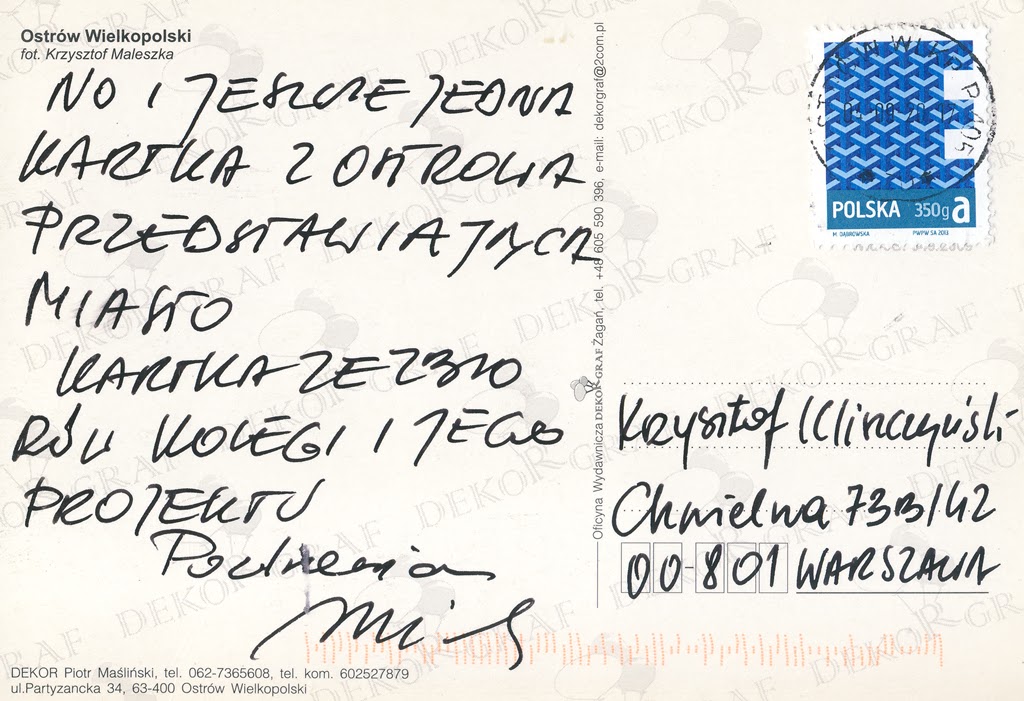 Ostrów Wielkopolski
fot. Krzysztof Maleszka
NO I JESZCZE JEDNA
KARTKA Z OSTROWA
PRZEDSTAWIAJĄCA
MIASTO
KARTKA ZE ZBIO
RÓW KOLEGI I JEGO
PROJEKTU
Pozdrawiam
DEKOR Piotr Maśliński, tel. 062-7365608, tel. kom. 602527879
ul.Partyzancka 34, 63-400 Ostrów Wielkopolski
Oficyna Wydawnicza DEKORGRAF Żagań, tel. +48 605 590 396, e-mail: dekorgraf@2com.pl
POLSKA 350g a
M. DĄBROWSKA PWPW SA 2013
Krzysztof Klinczyński
Chmielna 73B/42
00-801 WARSZAWA
DEKORGRAF